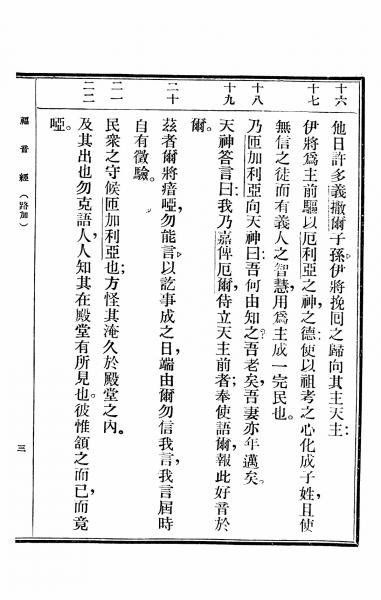 十六
他日許多義撒爾子孫伊將挽囘之歸向其主天主
十七
伊將爲主前驅以厄利亞之神之德使以祖考之心化成子姓且使
無信之徒而有義人之智慧用爲主成一完民也。
十八
乃匝加利亞向天神曰吾何由知之吾老矣吾妻亦年邁矣。
十九
天神答言曰我乃嘉俾厄爾侍立天主前者奉使語爾報此好音於
爾。
二十
茲者爾將瘖啞勿能言以訖事成之日端由爾勿信我言我言屆時
自有徵驗。
二一
民衆之守候匝加利亞也方怪其淹久於殿堂之內。
二二
及其出也勿克語人人知其在殿堂有所見也。彼惟頷之而已而竟
啞。
福音經（路加）
三